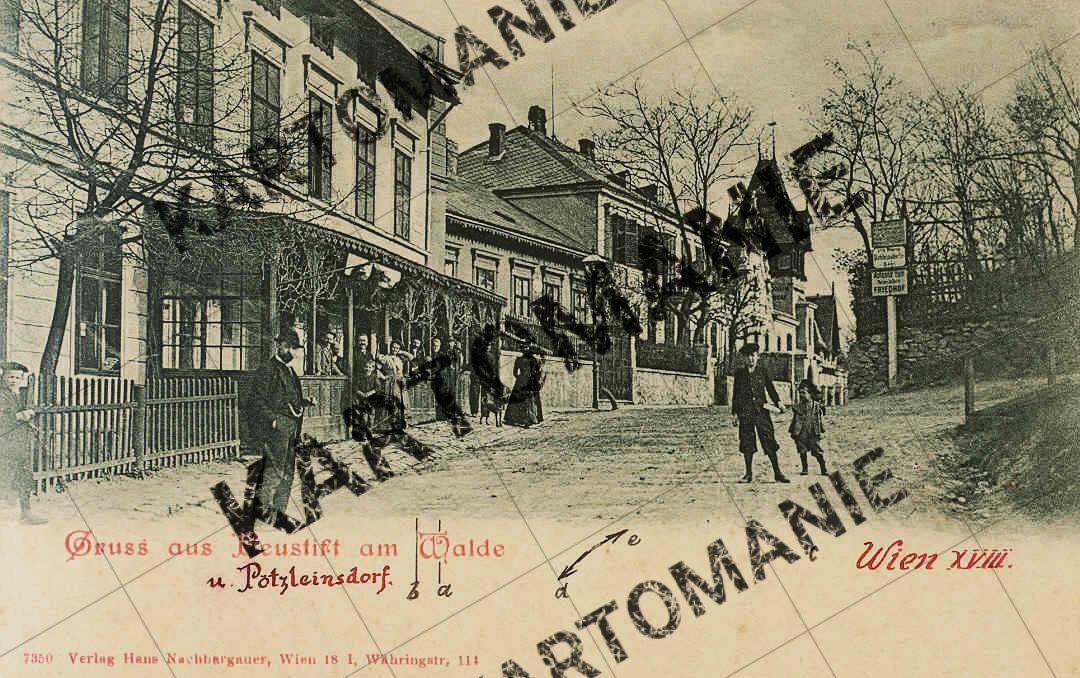 KARTOMANIE
KARTOMANIE
KARTOMANIE
KARTOMANIE
FRIEDHOF
Gruss aus Neustift am Walde
u. Pötzleinsdorf.
b a
d e
c
Wien XVIII.
7350 Verlag Hans Nachbargauer, Wien 18 I, Währingstr, 114